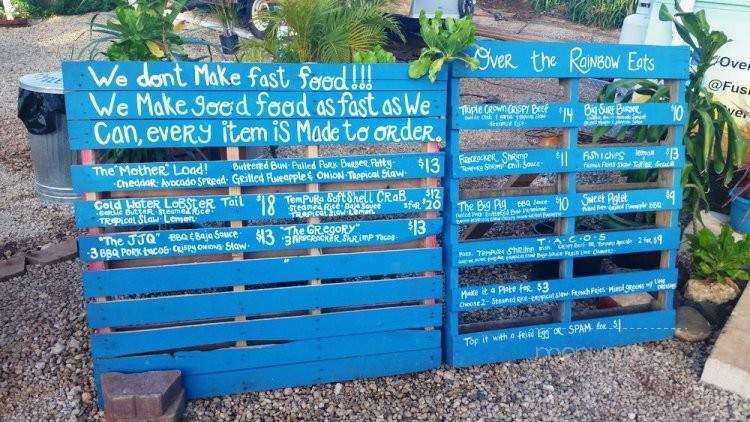 We dont Make fast food!!!
We Make good food as fast as We
Can, every item is Made to order.
The "Mother" Load! Buttered Bun · Pulled Pork Burger Patty · $13
· Cheddar · Avocado Spread · Grilled Pineapple & Onion · Tropical Slaw ·
Cold Water Lobster Tail $18
· Garlic Butter · Steamed Rice ·
Tropical Slaw · Lemon ·
Tempura Soft Shell Crab $12
Steamed Rice · Baja Sauce 2 for $20
Tropical Slaw · Lemon ·
"The JJQ" BBQ & Baja Sauce · $13
3 BBQ Pork Tacos · Crispy Onions · Slaw ·
"The Gregory" $13
· 3 Firecracker Shrimp Tacos ·
Over the Rainbow Eats
Triple Crown Crispy Beef $14
Steamed Rice ·
Big Surf Burger $10
Firecracker Shrimp $11
Steamed Rice · Tropical Slaw · Chili Sauce ·
Fish & Chips $13
French Fries · Tropical Slaw · Tartar Sauce
The Big Pig BBQ Sauce $10
Pulled Pork
Sweet Piglet $9
T·A·C·O·S
Tempura Shrimp 2 for $9
Make it a Plate for $3
Choose 2 · Steamed Rice · Tropical Slaw · French Fries · Mixed Greens w/ Lime
Top it with a fried Egg or SPAM for $1
Over
@Fusi
Over